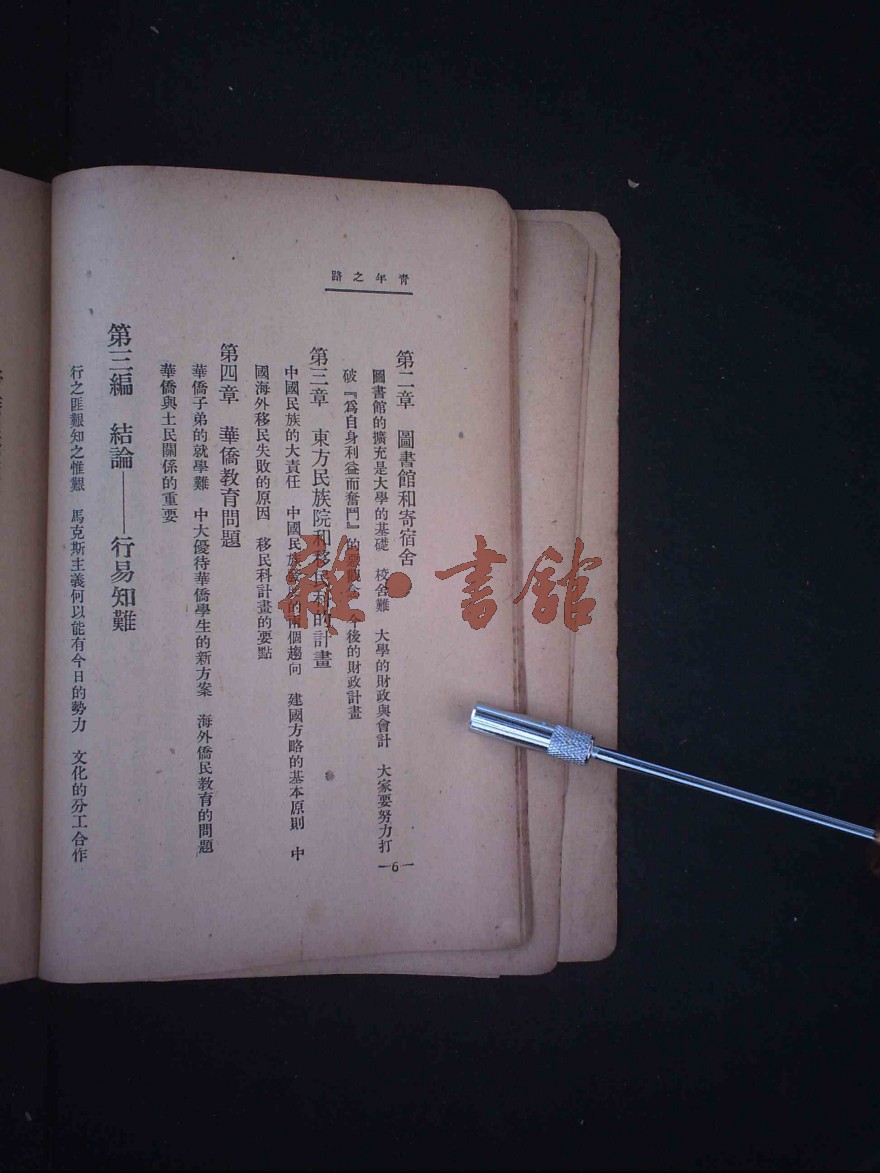 青年之路
第二章　圖書館和寄宿舍
圖書館的擴充是大學的基礎　校舍難　大學的財政與會計　大家要努力打
破『爲自身利益而奮鬥』的惡觀念　今後的財政計畫
第三章　東方民族院和移民科的計畫
中國民族的大責任　中國民族的兩個趨向　建國方略的基本原則　中
國海外移民失敗的原因　移民科計畫的要點
第四章　華僑教育問題
華僑子弟的就學難　中大優待華僑學生的新方案　海外僑民教育的問題
華僑與土民關係的重要
第三編　結論——行易知難
行之匪艱知之惟艱　馬克斯主義何以能有今日的勢力　文化的分工合作
—6—
雜·書館